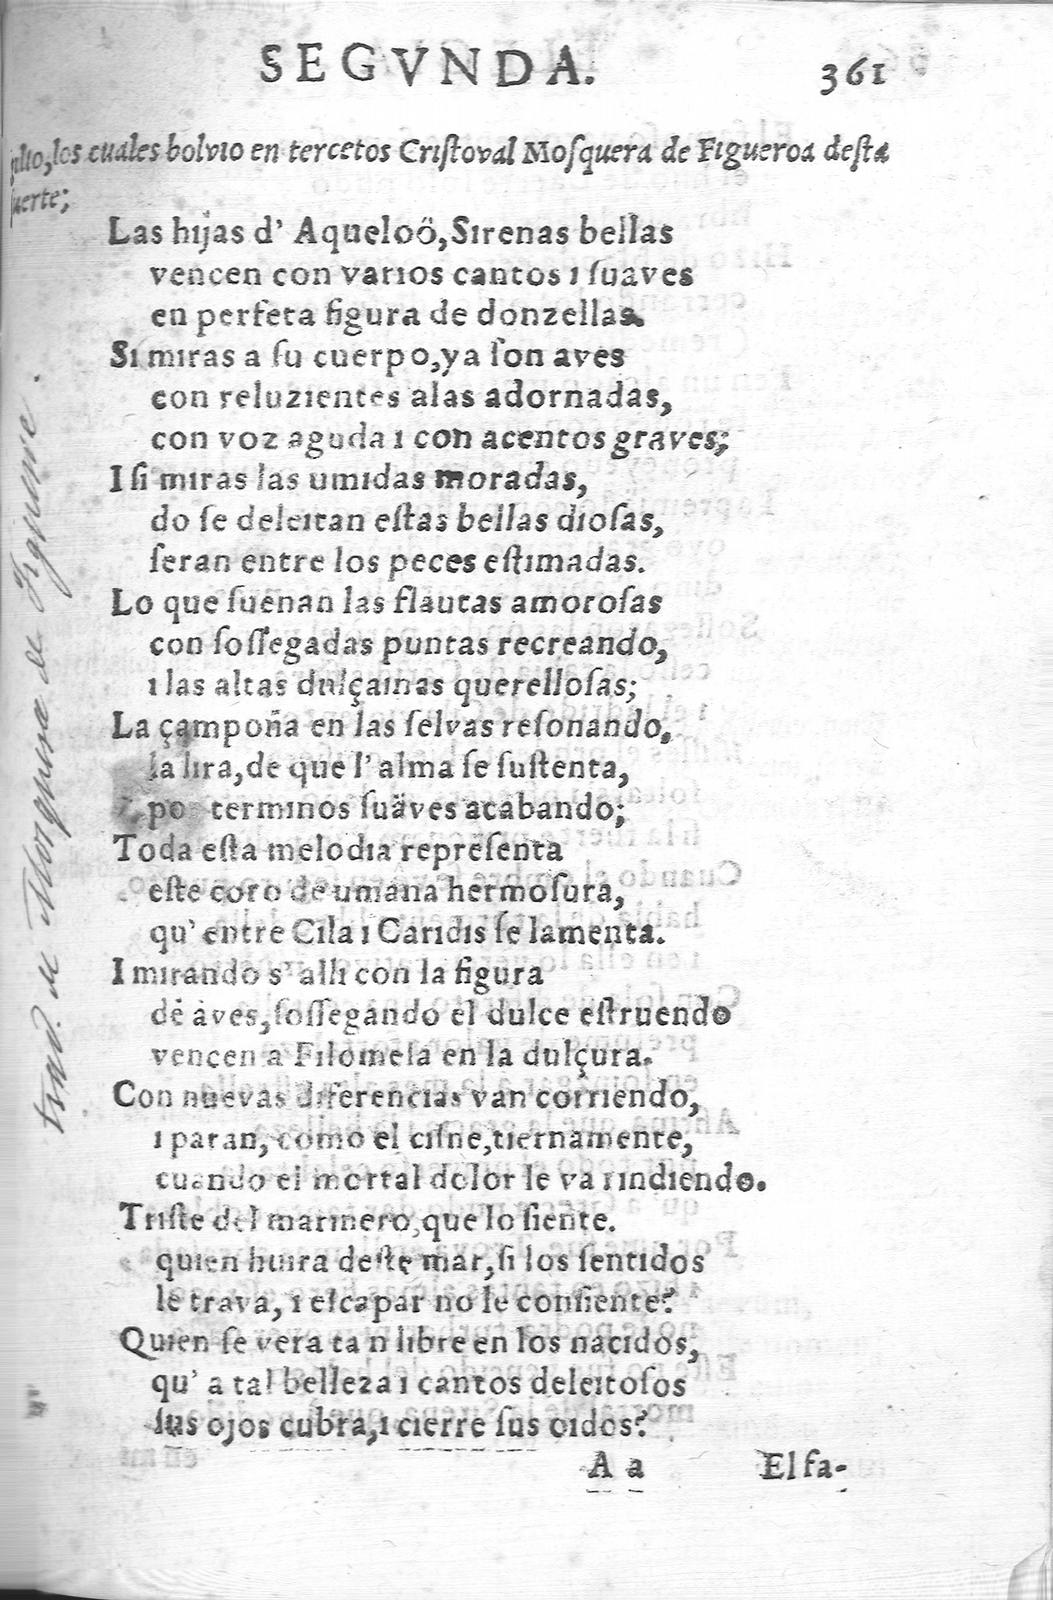 SEGVNDA. 361
los cuales bolvio en tercetos Cristoval Mosquera de Figueroa desta
suerte;
Las hijas d' Aqueloö, Sirenas bellas
vencen con varios cantos i suaves
en perfeta figura de donzellas.
Si miras a su cuerpo, ya son aves
con reluzientes alas adornadas,
con voz aguda i con acentos graves;
I si miras las umidas moradas,
do se deleitan estas bellas diosas,
seran entre los peces estimadas.
Lo que suenan las flautas amorosas
con sossegadas puntas recreando,
i las altas dulçainas querellosas;
La çampoña en las selvas resonando,
la lira, de que l' alma se sustenta,
por terminos suäves acabando;
Toda esta melodia representa
este coro de umana hermosura,
qu' entre Cila i Caridis se lamenta.
I mirando s' alli con la figura
de aves, sossegando el dulce estruendo
vencen a Filomela en la dulçura.
Con nuevas diferencias van corriendo,
i paran, como el cisne, tiernamente,
cuando el mortal dolor le va rindiendo.
Triste del marinero, que lo siente.
quien huira deste mar, si los sentidos
le trava, i escapar no le consiente?
Quien se vera tan libre en los nacidos,
qu' a tal belleza i cantos deleitosos
sus ojos cubra, i cierre sus oidos?
A a El fa-
trad. de Mosquera de Figueroa.